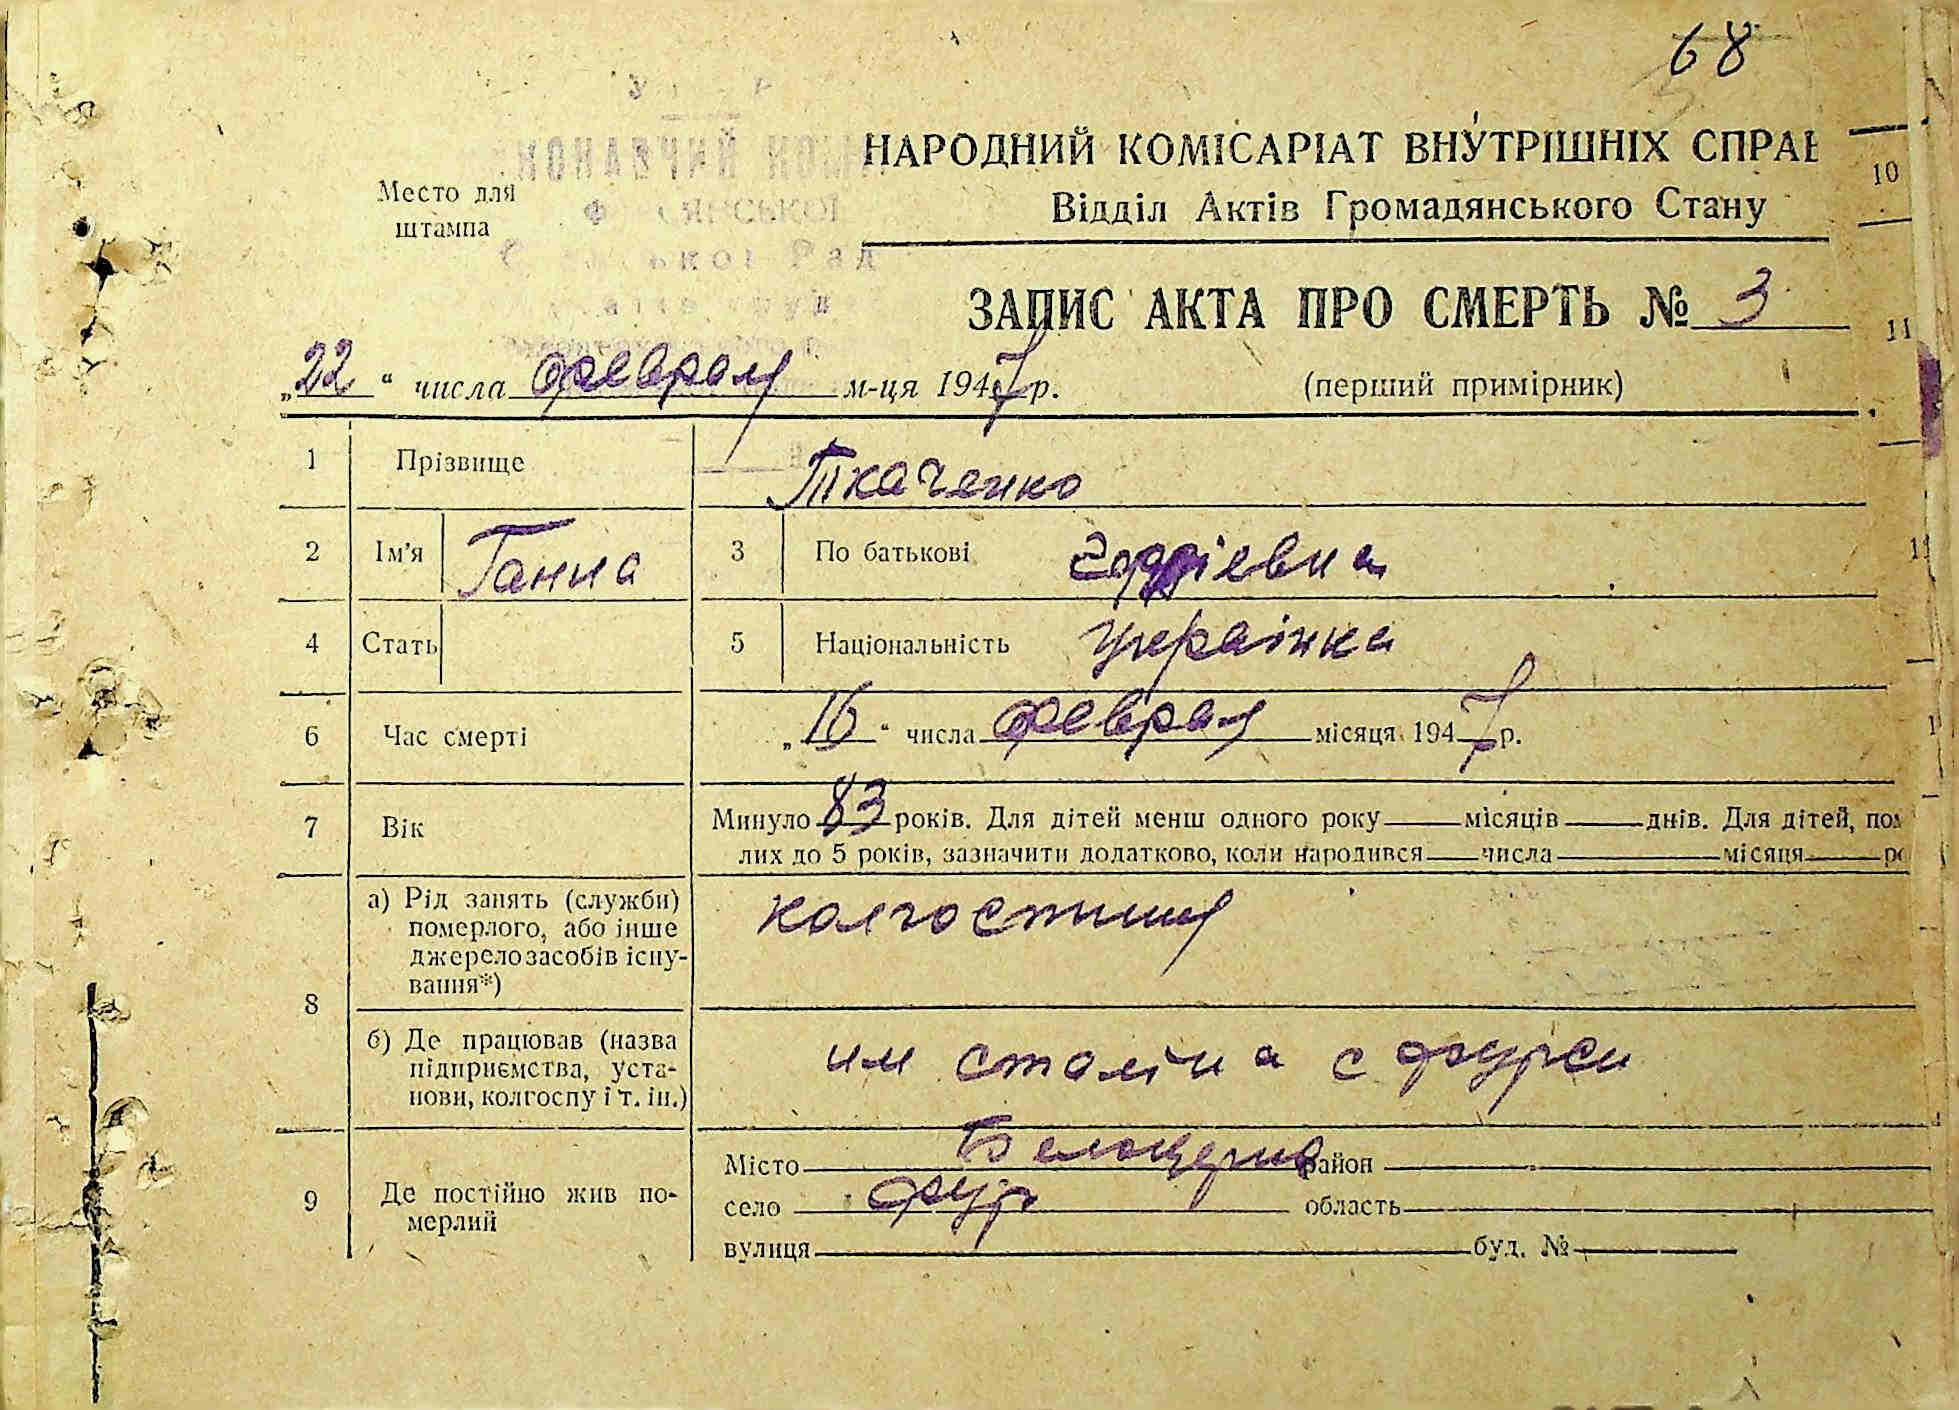 68
НАРОДНИЙ КОМІСАРІАТ ВНУТРІШНІХ СПРАВ
Відділ Актів Громадянського Стану
Место для
штампа
ЗАПИС АКТА ПРО СМЕРТЬ № 3
„22“ числа февраля м-ця 1947 р.
(перший примірник)
1 Прізвище Ткаченко
2 Ім'я Ганна 3 По батькові
4 Стать 5 Національність українка
6 Час смерті „16“ числа февраля місяця 1947 р.
7 Вік Минуло 83 років. Для дітей менш одного року місяців днів. Для дітей, пом
лих до 5 років, зазначити додатково, коли народився числа місяця
8 а) Рід занять (служби)
померлого, або інше
джерело засобів існу-
вання*)
колгоспниця
б) Де працював (назва
підприємства, уста-
нови, колгоспу і т. ін.)
им сталіна с фурси
9 Де постійно жив по-
мерлий
Місто Белоцеркив район
село фур область
вулиця буд. №
10
11